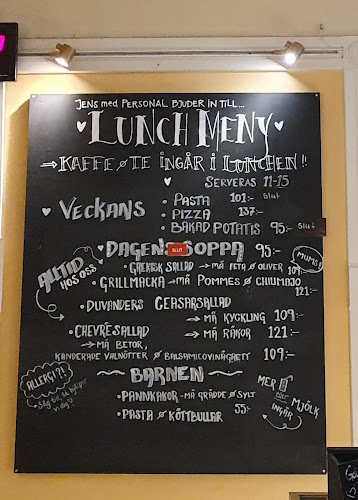 JENS med PERSONAL BJUDER IN TILL...
LUNCH MENY
→ KAFFE & TE INGÅR I LUNCHEN!!
SERVERAS 11-15
VECKANS
• PASTA 101:- Slut
• PIZZA 137:-
• BAKAD POTATIS 95:- Slut
DAGENS SOPPA 95:-
SLUT
ALLTID HOS OSS
MUMS!
• GREKISK SALLAD → MÅ FETA & OLIVER 109:-
• GRILLMACKA → MÅ POMMES & CHILIMAJO
121:-
• DUVANDERS CEASARSALLAD
→ MÅ KYCKLING 109:-
• CHEVRESALLAD → MÅ RÄKOR 121:-
→ MÅ BETOR,
KANDERADE VALNÖTTER & BALSAMICOVINÄGRETT 109:-
ALLERGI?!
Säg till, så hjälper
vi dig?
BARNEN
• PANNKAKOR - MÅ GRÄDDE & SYLT
• PASTA & KÖTTBULLAR 55:-
MER
MJÖLK
INGÅR